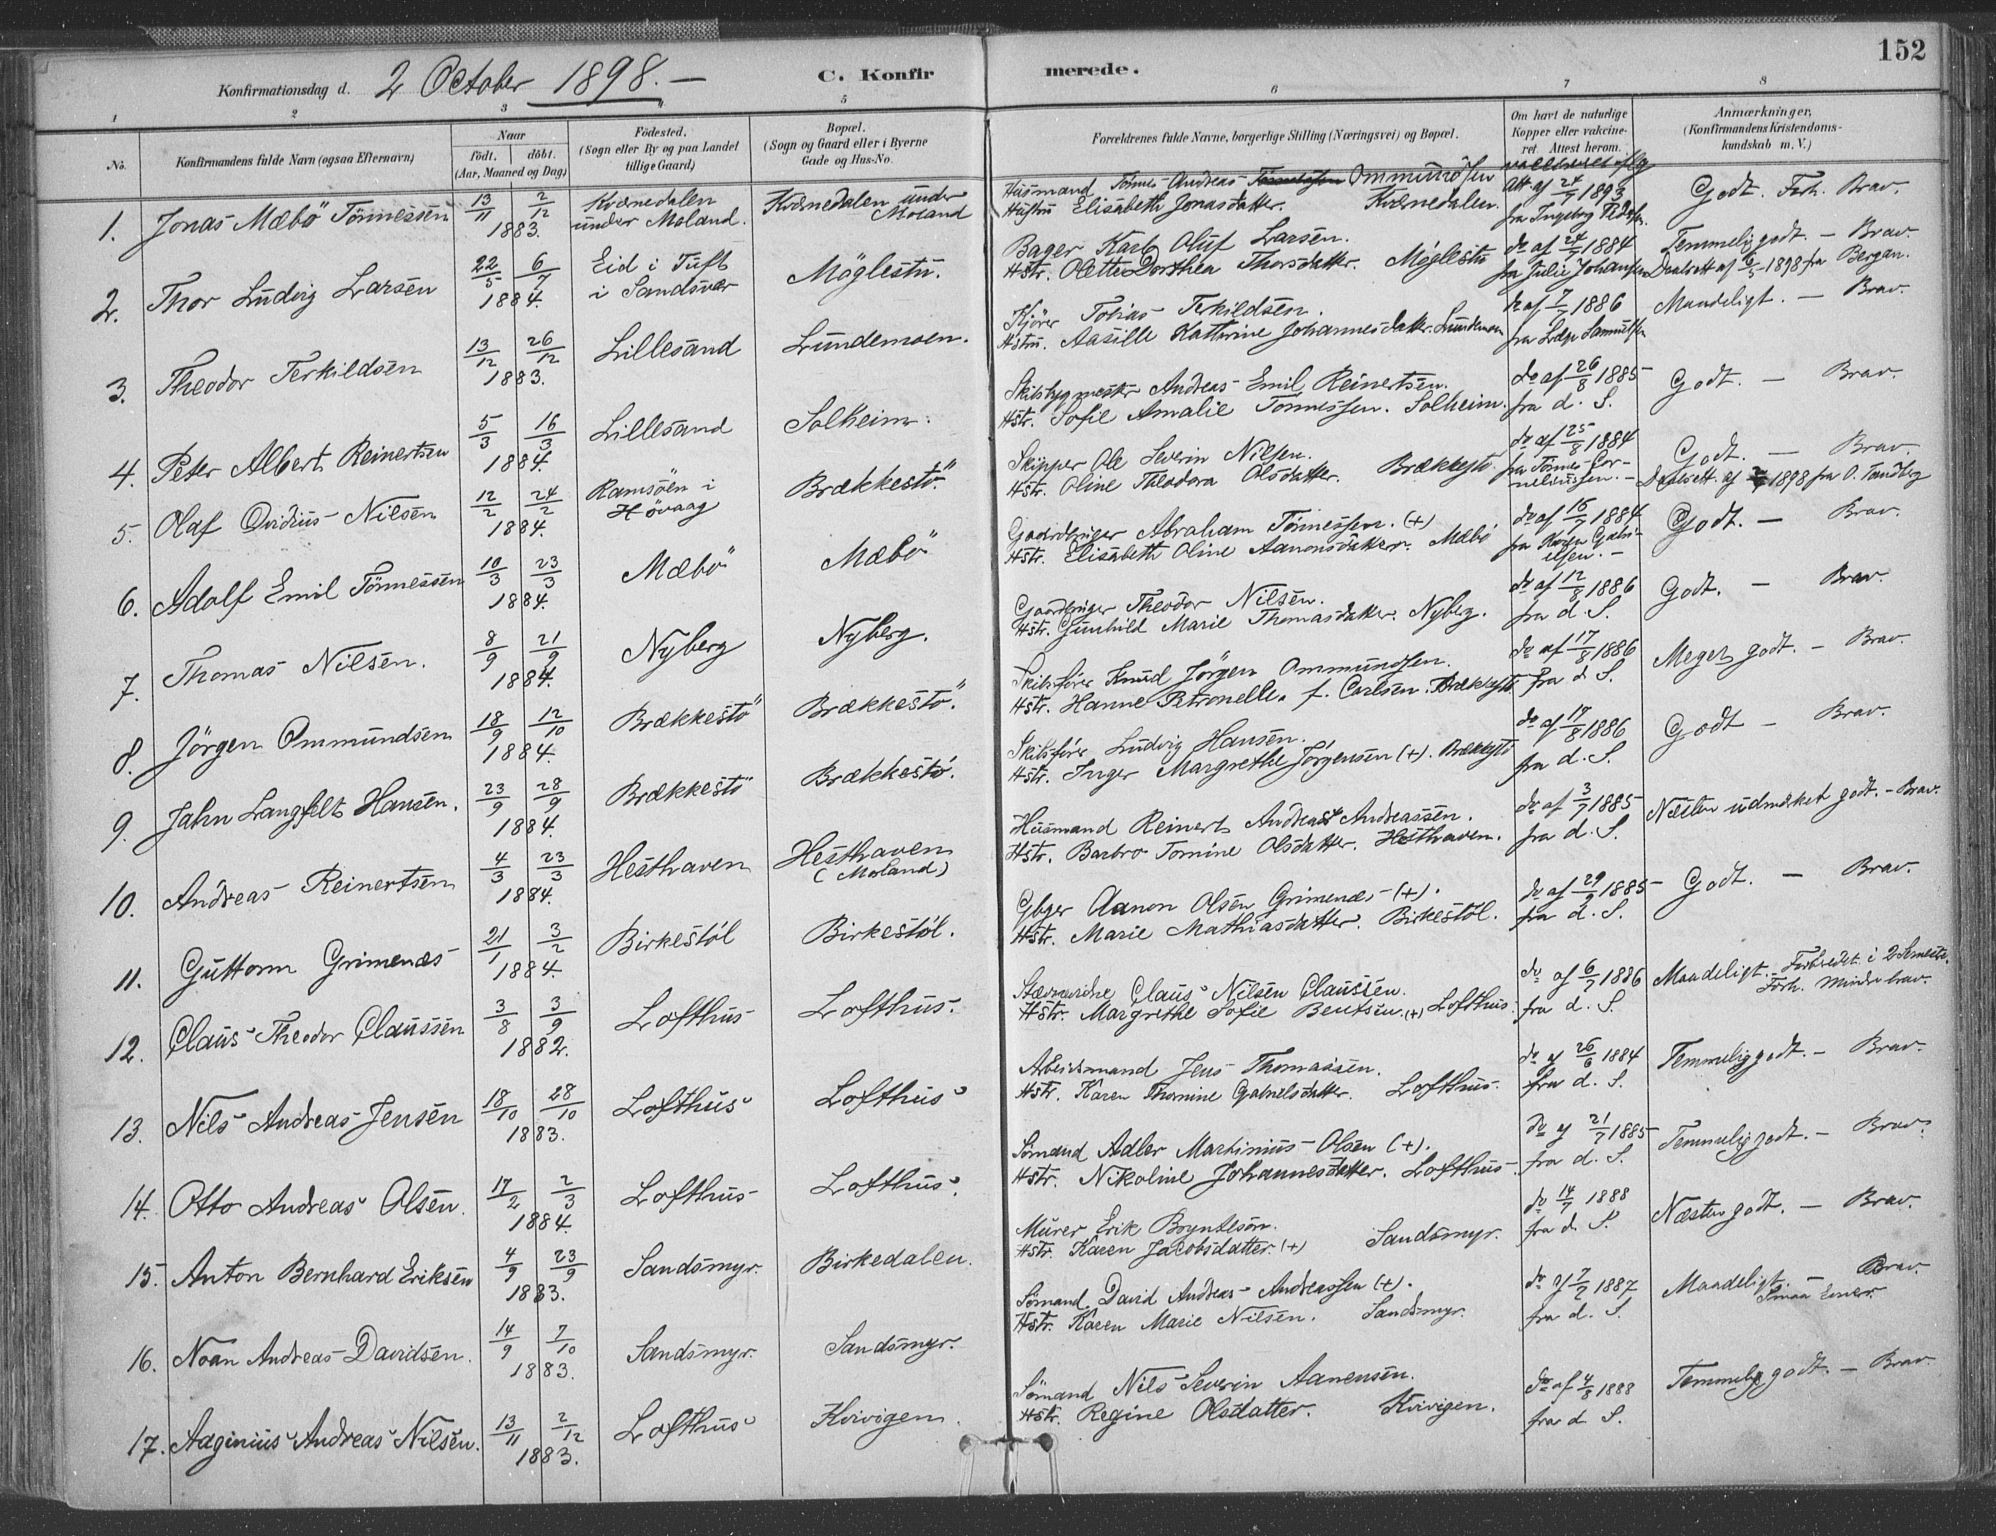 152
Konfirmationsdag d. 2 October 1898. —
C. Konfirmerede.
1 2 3 5 6 7 8
No.
Konfirmandens fulde Navn (ogsaa Efternavn)
Naar
födt. döbt.
(Aar, Maaned og Dag)
Födested.
(Sogn eller By og paa Landet
tillige Gaard)
Bopæl.
(Sogn og Gaard eller i Byerne
Gade og Hus-No.
Forældrenes fulde Navne, borgerlige Stilling (Næringsvei) og Bopæl.
Om havt de naturlige
Kopper eller vakcine-
ret. Attest herom.
Anmærkninger,
(Konfirmandens Kristendoms-
kundskab m. V.)
1. Jonas Mæbö Tönnessen 13/11 2/12 1883. Kvænedalen
under Moland. Kvænedalen under
Moland
Husmand Tönnes Andreas Ommundsen
Hustru Elisabeth Jonasdatter. Kvænedalen.
Att. af 24/7 1893
fra Ingeborg
Godt. Forh. Brav.
2. Thor Ludvig Larsen 22/5 6/7 1884. Eid i Tuft
i Sandsvær Möglestu.
Bager Karl Oluf Larsen.
Hstr. Olette Dorthea Thorsdatter. Möglestu
do af 24/7 1884
fra Julie Johansen
Temmelig godt. — Brav.
1898 fra Bergan.
3. Theodor Terkildsen 13/12 26/12 1883. Lillesand Lundemoen.
Kjörer Tobias Terkildsen.
Hstru. Aasille Kathrine Johannesdatter. Lundemoen
do af 7/7 1886
Maadeligt. — Brav.
4. Peter Albert Reinertsen 5/3 16/3 1884. Lillesand Solheim.
Skibsbygmester Andreas Emil Reinertsen.
Hstr. Sofie Amalie Tönnessen. Solheim.
do af 26/8 1885
fra d. S.
Godt. — Brav.
5. Olaf Ovidius Nilsen 12/2 24/2 1884. Ramsöen i
Hövaag Brækkestö.
Skipper Ole Severin Nilsen.
Hstr. Oline Theodora Olsdatter. Brækkestö
do af 25/8 1884
fra Tönnes Cor-
neliussen. —
Godt. — Brav.
1898 fra O. Tandberg
6. Adolf Emil Tönnessen 10/3 23/3 1884. Mæbö Mæbö
Gaardbruger Abraham Tönnessen. (+)
Hstr. Elisabeth Oline Aanonsdatter. Mæbö
do af 15/7 1884
Godt. — Brav.
7. Thomas Nilsen. 8/9 21/9 1884. Nyberg Nyberg.
Gaardbruger Theodor Nilsen.
Hstr. Gunhild Marie Thomasdatter. Nyberg.
do af 12/8 1886
fra d. S.
Godt. — Brav.
8. Jörgen Ommundsen 18/9 12/10 1884. Brækkestö Brækkestö.
Skibsförer Knud Jörgen Ommundsen.
Hstr. Hanne Petronelle f. Carlsen. Brækkestö
do af 17/8 1886
fra d. S.
Meget godt. — Brav.
9. Jahn Langfelt Hansen. 23/9 28/9 1884. Brækkestö Brækkestö.
Skibsförer Ludvig Hansen.
Hstr. Inger Margrethe Jörgensen (+). Brækkestö
do af 17/8 1886
fra d. S.
Godt — Brav.
10. Andreas Reinertsen 4/3 23/3 1884. Hesthaven Hesthaven
(Moland)
Husmand Reinert Andreas Andreassen.
Hstr. Barbro Tomine Olsdatter. Hesthaven.
do af 3/7 1885
fra d. S.
Næsten udmærket godt. — Brav.
11. Guttorm Grimenæs 21/1 3/2 1884. Birkestöl Birkestöl.
Gbger Aanon Olsen Grimenæs (+).
Hstr. Marie Mathiasdatter. Birkestöl.
do af 29/9 1885
fra d. S.
Godt. — Brav.
12. Claus Theodor Claussen 3/8 3/9 1882. Lofthus Lofthus.
Claus Nilsen Claussen.
Hstr. Margrethe Sofie Bentsen. (+) Lofthus
do af 6/7 1886
fra d. S.
Maadeligt. Forberedet i 2 Semestre.
Forh. Mindre brav.
13. Nils Andreas Jensen 18/10 28/10 1883. Lofthus Lofthus
Arbeidsmand Jens Thomassen.
Hstr. Karen Thomine Gabrielsdatter. Lofthus.
do af 26/6 1884
fra d. S.
Temmelig godt. — Brav.
14. Otto Andreas Olsen. 17/2 2/3 1884. Lofthus Lofthus.
Sömand Adler Martinius Olsen (+).
Hstr. Nikoline Johannesdatter. Lofthus
do af 21/7 1885
fra d. S.
Temmelig godt. — Brav.
15. Anton Bernhard Eriksen 4/9 23/9 1883. Sandsmyr. Birkedalen.
Murer Erik Bryntesön.
Hstr. Karen Jacobsdatter. (+) Sandsmyr.
do 14/7 1888
fra d. S.
Næsten godt. — Brav.
16. Noan Andreas Davidsen. 14/9 7/10 1883. Sandsmyr. Sandsmyr.
Sömand David Andreas Andreassen (+).
Hstr. Karen Marie Nilsen. Sandsmyr.
do af 7/7 1887
fra d. S.
Maadeligt. — Brav.
Smaa Evner.
17. Aaginius Andreas Nilsen. 13/11 2/12 1883. Lofthus Kvivigen.
Sömand Nils Severin Aanensen.
Hstr. Regine Olsdatter. Kvivigen.
do af 4/8 1888
fra d. S.
Temmelig godt. — Brav.